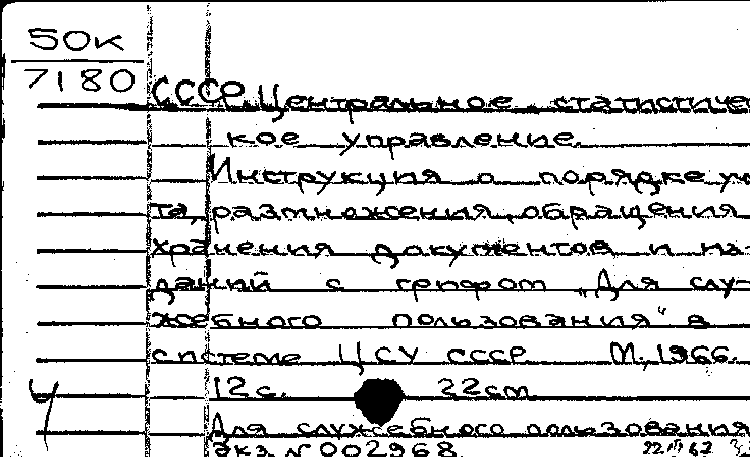 50к
7180
СССР. Центральное статистичес
кое управление.
Инструкция о порядке уче
та, размножения, обращения
хранения документов и из-
даний с грифом „Для слу-
жебного пользования" в
системе ЦСУ СССР М., 1966.
12с. 22см
Для служебного пользования
Экз. № 002968